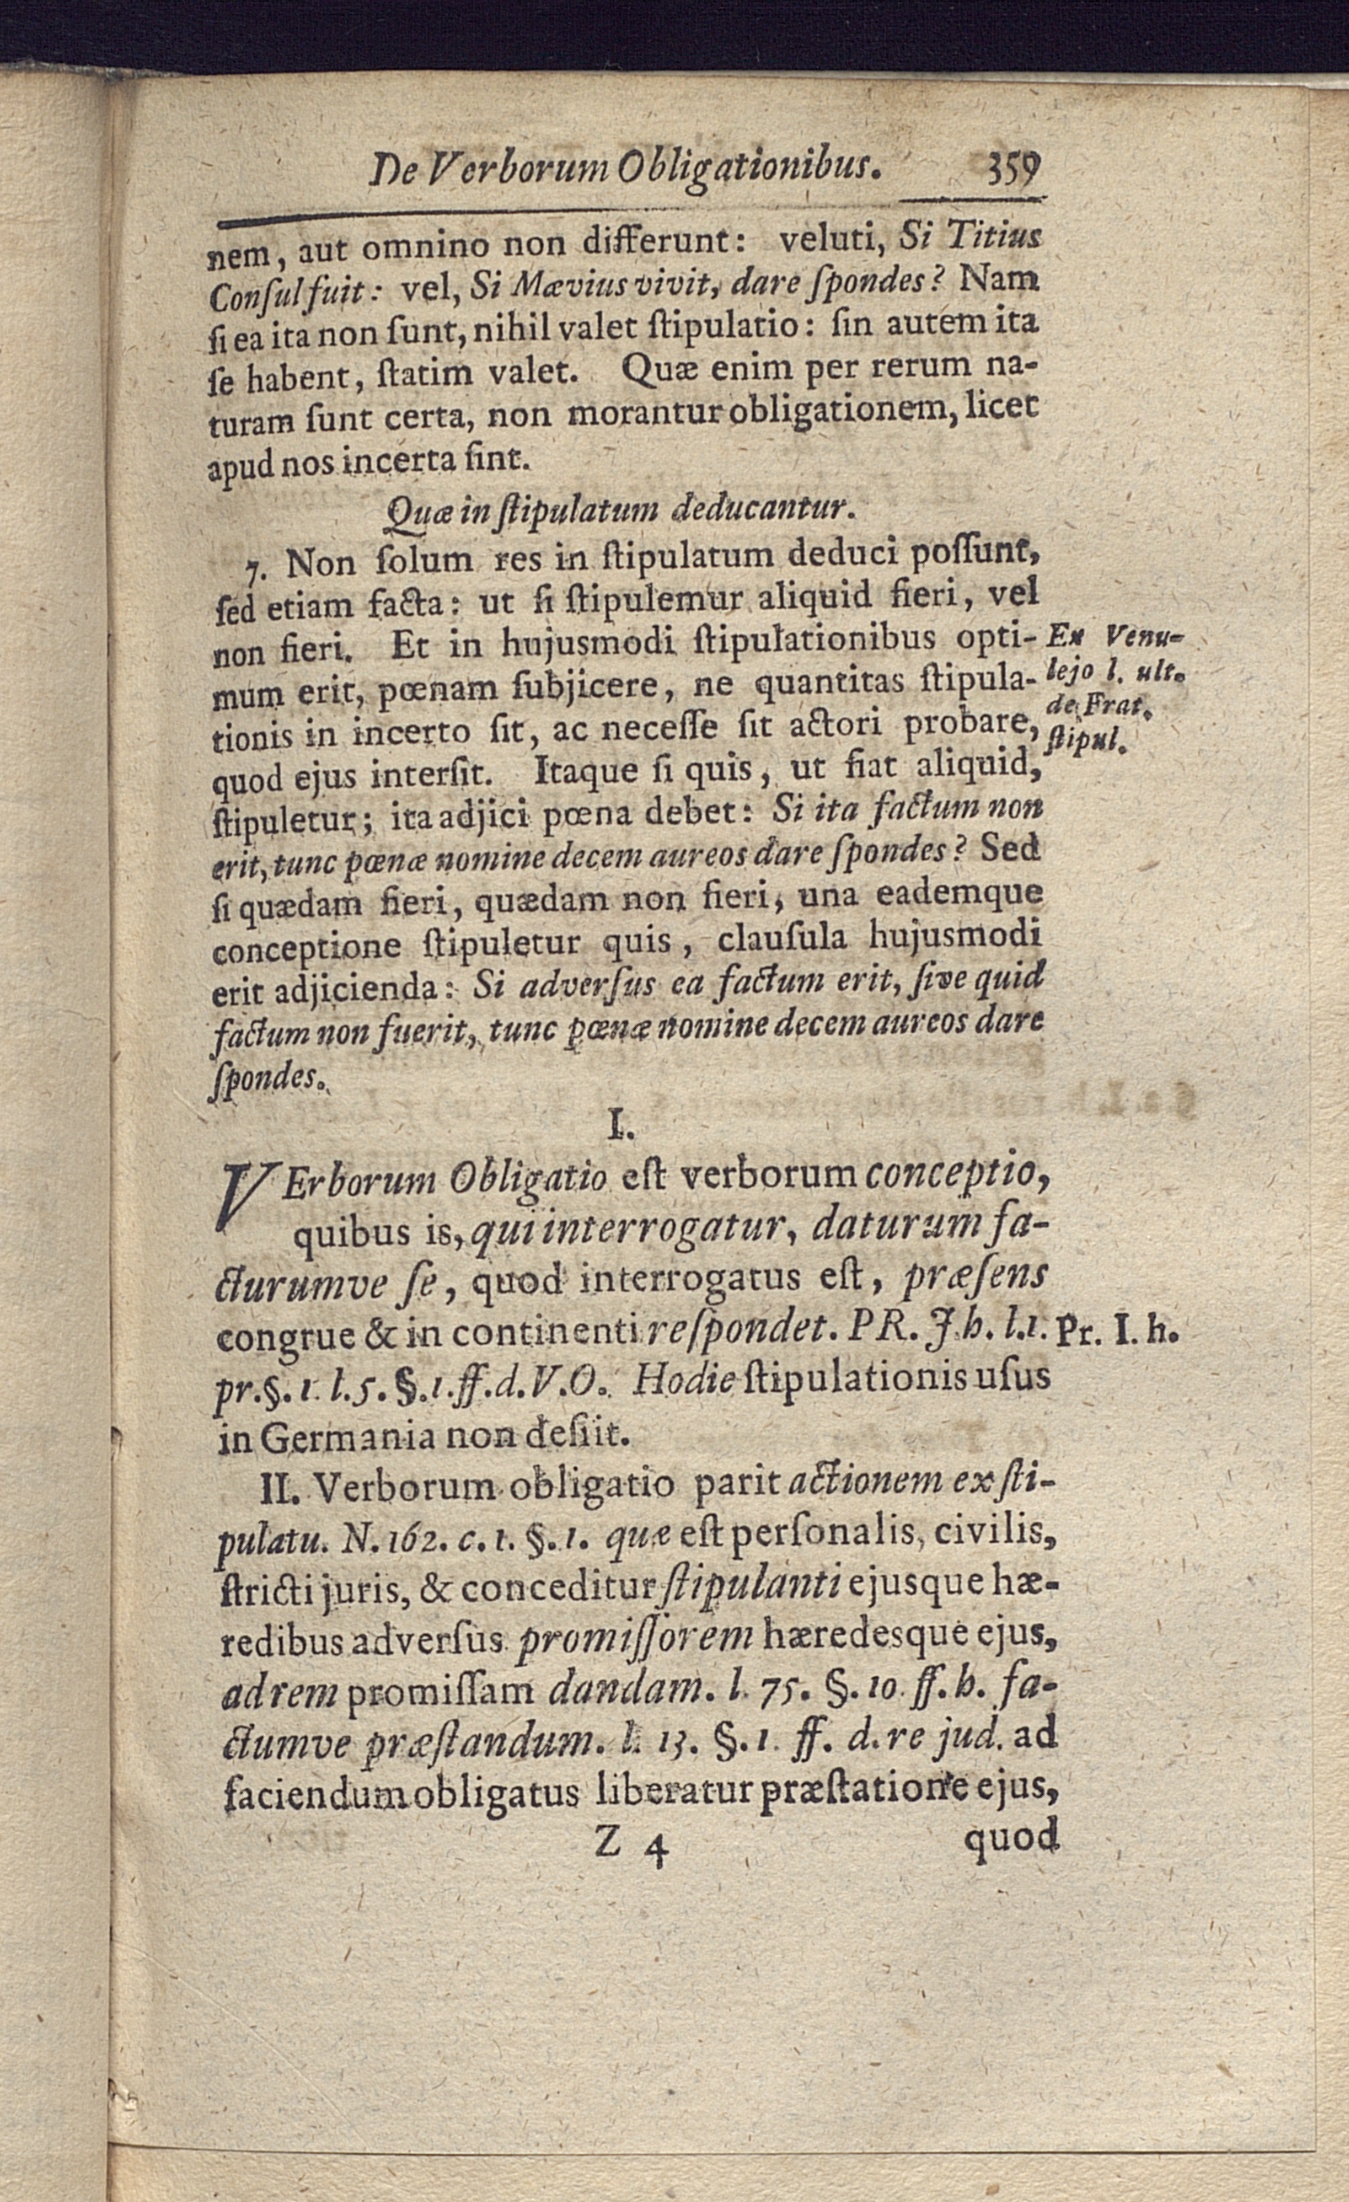 De Verborum Obligationibus. 359
nem, aut omnino non differunt: veluti, Si Titius
Conſul fuit: vel, Si Mævius vivit, dare ſpondes? Nam
ſi ea ita non ſunt, nihil valet ſtipulatio: ſin autem ita
ſe habent, ſtatim valet. Quæ enim per rerum na-
turam ſunt certa, non morantur obligationem, licet
apud nos incerta ſint.
Quæ in ſtipulatum deducantur.
7. Non ſolum res in ſtipulatum deduci poſſunt,
ſed etiam facta: ut ſi ſtipulemur aliquid fieri, vel
non fieri. Et in hujusmodi ſtipulationibus opti-
mum erit, pœnam ſubjicere, ne quantitas ſtipula-
tionis in incerto ſit, ac neceſſe ſit actori probare,
quod ejus interſit. Itaque ſi quis, ut fiat aliquid,
ſtipuletur; ita adjici pœna debet: Si ita factum non
erit, tunc pœnæ nomine decem aureos dare ſpondes? Sed
ſi quædam fieri, quædam non fieri, una eademque
conceptione ſtipuletur quis, clauſula hujusmodi
erit adjicienda: Si adverſus ea factum erit, ſive quid
factum non fuerit, tunc pœnæ nomine decem aureos dare
ſpondes.
Ex Venu-
lejo l. ult.
de Frat.
ſtipul.
I.
VErborum Obligatio eſt verborum conceptio,
quibus is, qui interrogatur, daturum fa-
cturumve ſe, quod interrogatus eſt, præſens
congrue & in continenti reſpondet. PR. J. h. l.1.
pr. §. 1. l. 5. §. 1. ff. d. V. O. Hodie ſtipulationis uſus
in Germania non deſiit.
Pr. I. h.
II. Verborum obligatio parit actionem ex ſti-
pulatu. N. 162. c. 1. §. 1. quæ eſt perſonalis, civilis,
ſtricti juris, & conceditur ſtipulanti ejusque hæ-
redibus adverſus promiſſorem hæredesque ejus,
ad rem promiſſam dandam. l. 75. §. 10. ff. h. fa-
ctumve præſtandum. l. 13. §. 1. ff. d. re jud. ad
faciendum obligatus liberatur præſtatione ejus,
Z 4 quod